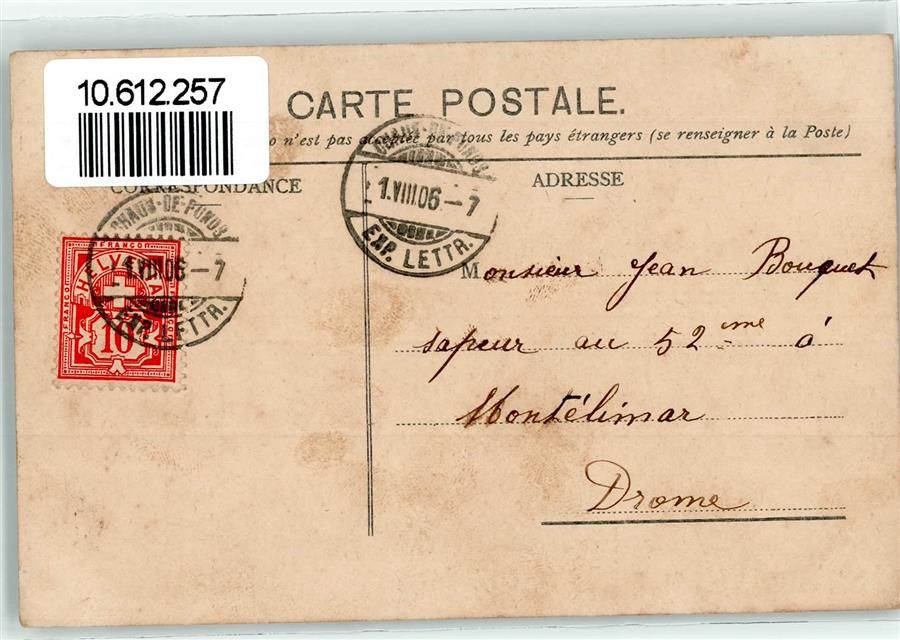 10.612.257
CARTE POSTALE.
n'est pas acceptée par tous les pays étrangers (se renseigner à la Poste)
CORRESPONDANCE
ADRESSE
CHAUX-DE-FONDS
1.VIII.06.-7
EXP. LETTR.
CHAUX-DE-FONDS
1.VIII.06-7
EXP. LETTR.
FRANCO
FRANCO
FRANCO
HELVETIA
10
Monsieur Jean Bouquet
sapeur au 52ème à
Montélimar
Drome